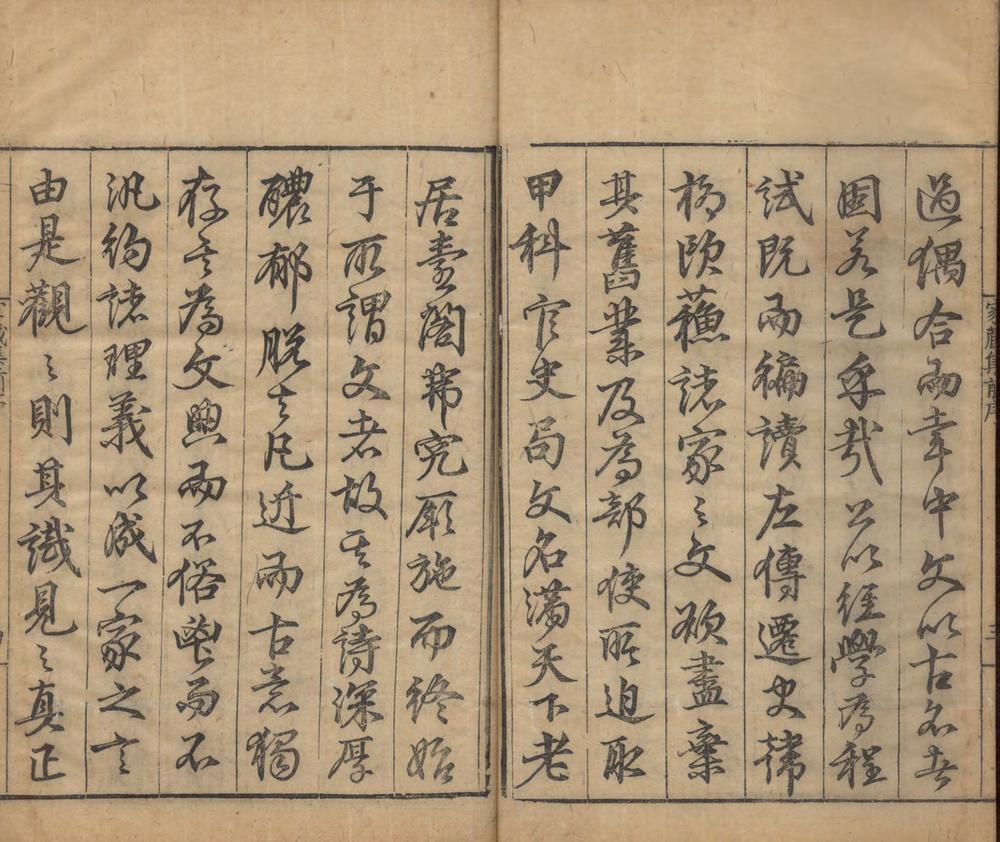 過偶合而幸中文以古名者
固若是乎哉公以經學為程
試既而徧讀左傳遷史韓
柳歐蘇諸家之文欲盡棄
其舊業及為部使所迫取
甲科官史局文名滿天下老
居臺閣弗究厥施而終始
于所謂文者故其為詩深厚
醲郁脫去凡近而古意獨
存其為文典而不俗鬯而不
汎約諸理義以成一家之言
由是觀之則其識見之真正